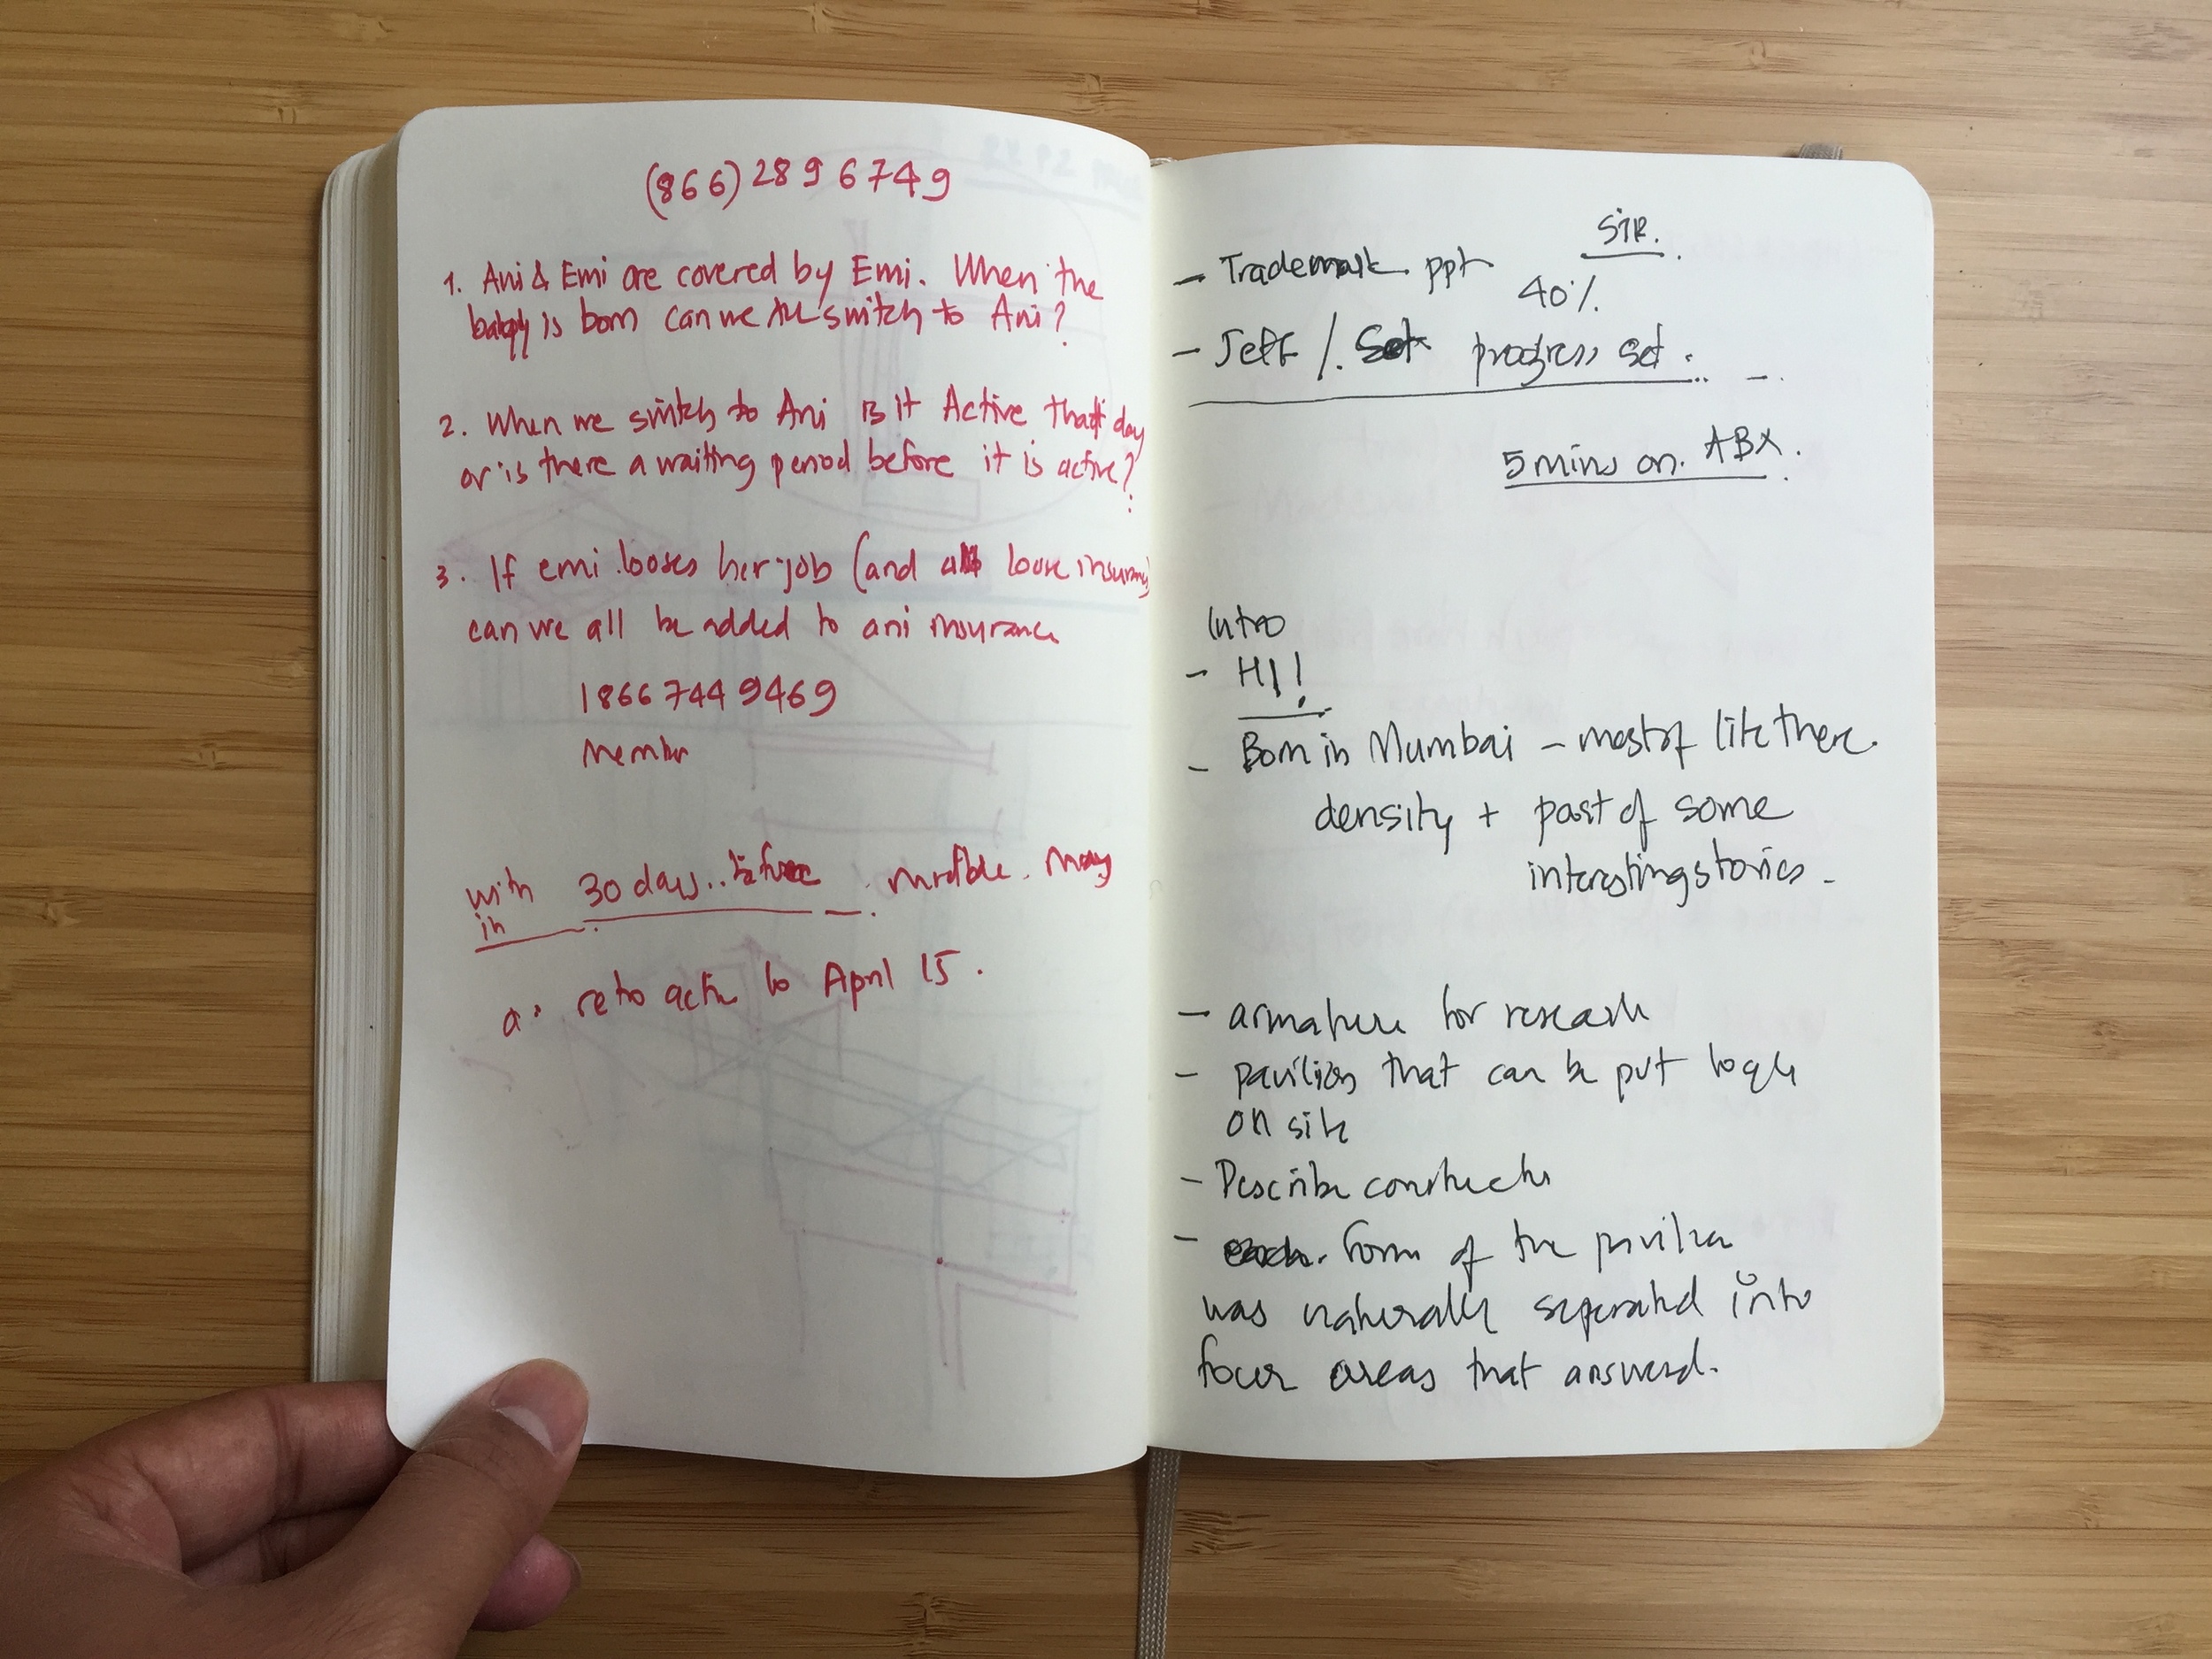 (866) 289 6749
1. Ani & Emi are covered by Emi. When the
baby is born can we switch to Ani?
2. When we switch to Ani is it Active that day
or is there a waiting period before it is active?
3. If emi looses her job (and loose insurance)
can we all be added to ani insurance
1866 744 9469
Member
with in 30 days.. before . May
a. retro active to April 15.
STR.
- Trademark ppt
40%
- Jeff /. Set progress set.
5 mins on. ABX.
Intro
- HI!
- Born in Mumbai - most of life there.
density + part of some
interesting stories -
- armature for research
- pavilion that can be put togth
on site
- Describe
- each. form of the pavilion
was naturally separated into
four areas that answerd.